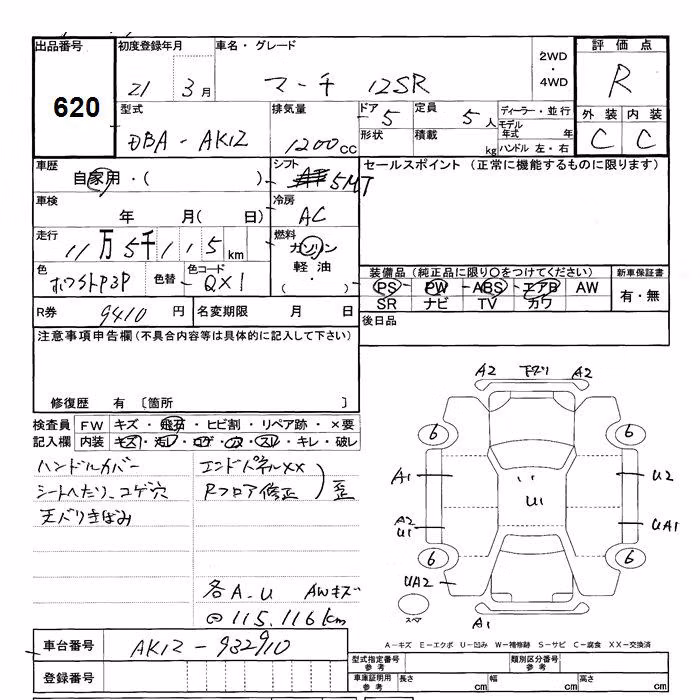 出品番号
620
初度登録年月
21 3月
車名・グレード
マーチ 12SR
2WD
・
4WD
評価点
R
外装 内装
C C
型式
DBA-AK12
排気量
1200cc
ドア 5
定員 5人
形状
積載 kg
ディーラー・並行
モデル年式 年
ハンドル 左・右
車歴
自家用・( )
シフト
5MT
セールスポイント (正常に機能するものに限ります)
車検
年 月( 日)
冷房
AC
走行
11万5千115km
燃料
ガソリン
軽油
・
( )
色
ホワイトP3P
色替
色コード
QX1
装備品 (純正品に限り○をつけてください)
PS - PW - ABS - エアB AW
SR ナビ TV カワ
新車保証書
有・無
R券 9410円
名変期限 月 日
後日品
注意事項申告欄 (不具合内容等は具体的に記入して下さい)
修復歴 有 〔箇所 〕
検査員
記入欄
FW キズ・飛石・ヒビ割・リペア跡・×要
内装 キズ・ヨレ・コゲ・穴・スレ・キレ・破レ
ハンドルカバー
シートへたり、コゲ穴
天バリきばみ
エンドパネルXX
Rフロア修正
歪
各A.U AWキズ
@115.116km
A2 下ズリ A2
6 6
A1 U2
U1
A2
U1
UA1
6 6
UA2
スペア
A1
A-キズ E-エクボ U-凹み W-補修跡 S-サビ C-腐食 XX-交換済
車台番号
AK12-932910
登録番号
型式指定番号
参考
類別区分番号
参考
車庫証明用
参考
長さ cm
幅 cm
高さ cm